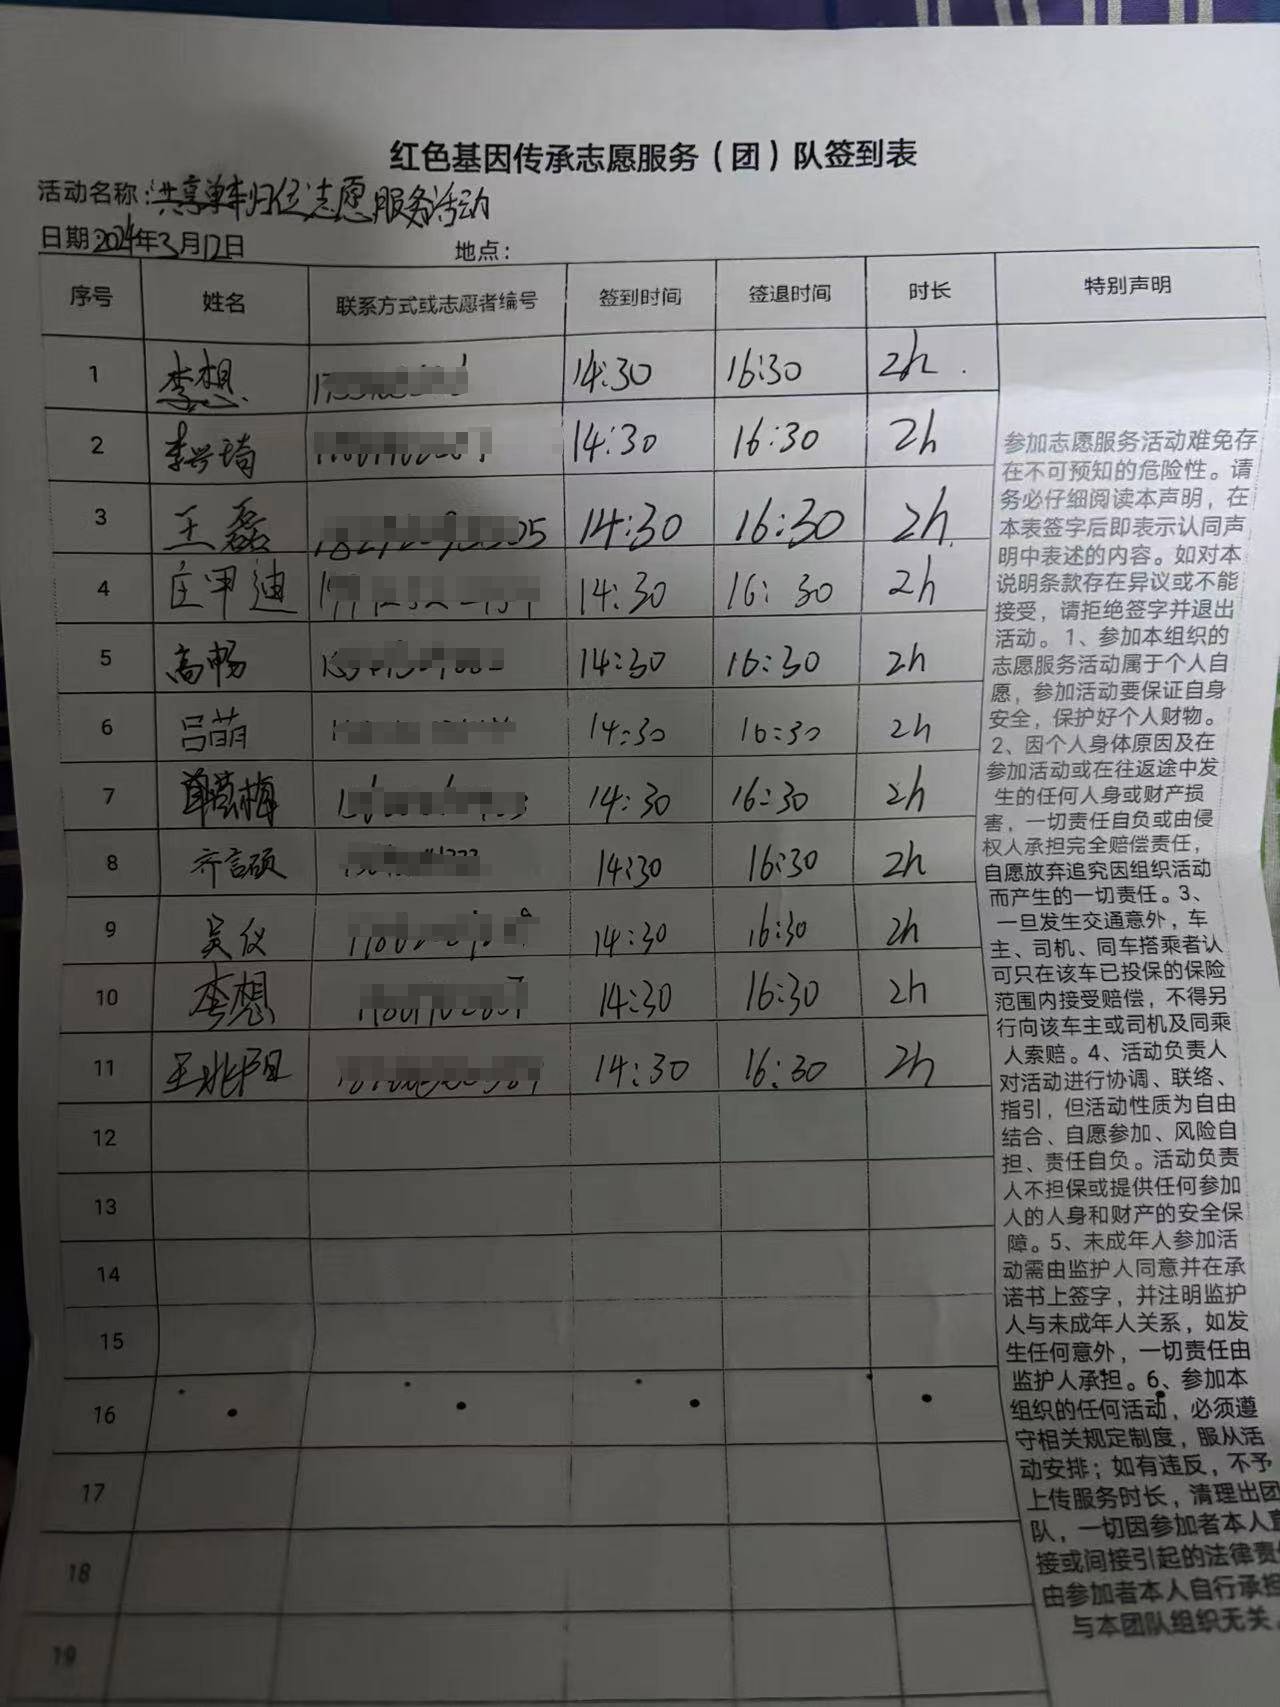 红色基因传承志愿服务（团）队签到表
活动名称：共享单车归位志愿服务活动
日期2024年3月12日 地点：
序号 姓名 联系方式或志愿者编号 签到时间 签退时间 时长 特别声明
1 李想 14:30 16:30 2h
2 李兴琦 14:30 16:30 2h
3 王磊 14:30 16:30 2h
4 庄甲迪 14:30 16:30 2h
5 高畅 14:30 16:30 2h
6 吕萌 14:30 16:30 2h
7 14:30 16:30 2h
8 齐言硕 14:30 16:30 2h
9 吴仪 14:30 16:30 2h
10 李想 14:30 16:30 2h
11 14:30 16:30 2h
12
13
14
15
16
17
18
19
参加志愿服务活动难免存
在不可预知的危险性。请
务必仔细阅读本声明，在
本表签字后即表示认同声
明中表述的内容。如对本
说明条款存在异议或不能
接受，请拒绝签字并退出
活动。1、参加本组织的
志愿服务活动属于个人自
愿，参加活动要保证自身
安全，保护好个人财物。
2、因个人身体原因及在
参加活动或在往返途中发
生的任何人身或财产损
害，一切责任自负或由侵
权人承担完全赔偿责任，
自愿放弃追究因组织活动
而产生的一切责任。3、
一旦发生交通意外，车
主、司机、同车搭乘者认
可只在该车已投保的保险
范围内接受赔偿，不得另
行向该车主或司机及同乘
人索赔。4、活动负责人
对活动进行协调、联络、
指引，但活动性质为自由
结合、自愿参加、风险自
担、责任自负。活动负责
人不担保或提供任何参加
人的人身和财产的安全保
障。5、未成年人参加活
动需由监护人同意并在承
诺书上签字，并注明监护
人与未成年人关系，如发
生任何意外，一切责任由
监护人承担。6、参加本
组织的任何活动，必须遵
守相关规定制度，服从活
动安排；如有违反，不予
上传服务时长，清理出团
队，一切因参加者本人直
接或间接引起的法律责任
由参加者本人自行承担
与本团队组织无关。